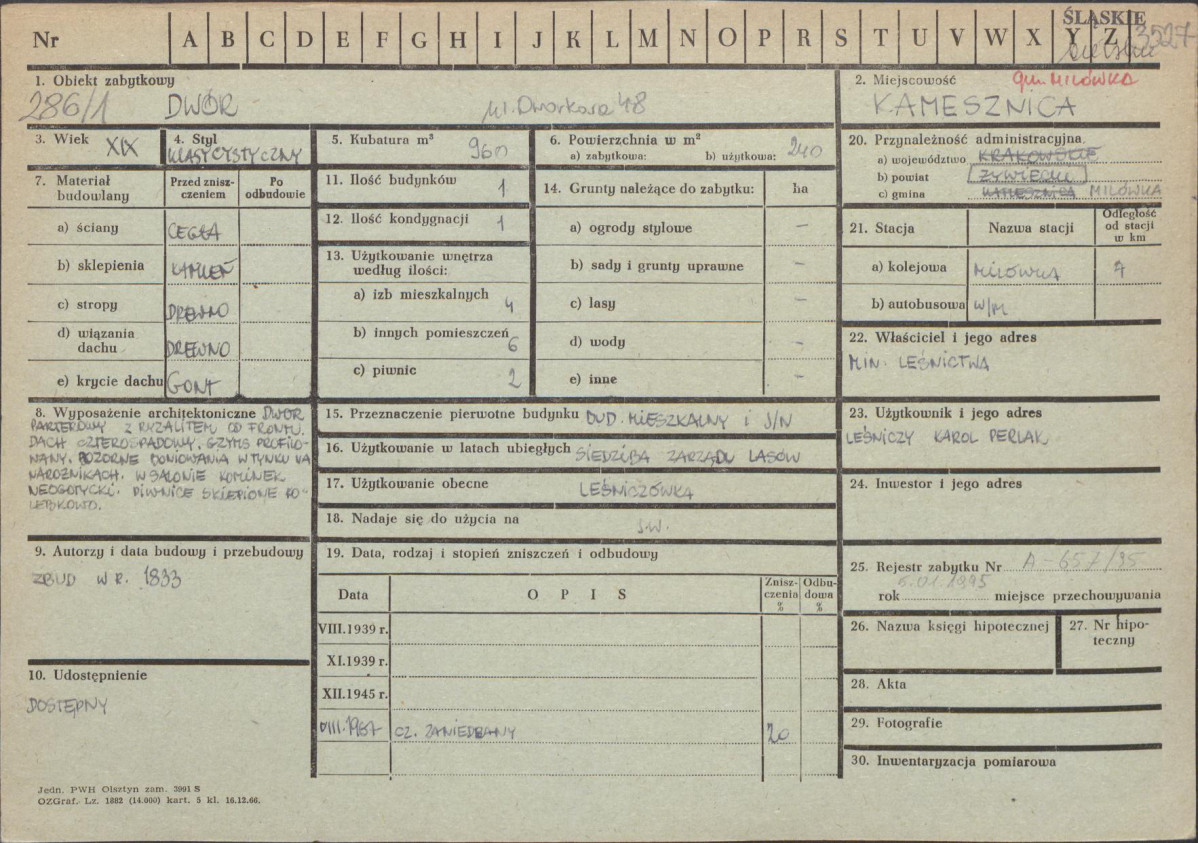 Nr A B C D E F G H I J K L M N O P R S T U V W X Y Z
ŚLĄSKIE
3527
1. Obiekt zabytkowy
286/1 DWÓR ul. Dworkowa 48
2. Miejscowość gm. MILÓWKA
KAMESZNICA
3. Wiek XIX
4. Styl
KLASYCYSTYCZNY
5. Kubatura m³
960
6. Powierzchnia w m²
a) zabytkowa: b) użytkowa: 240
7. Materiał budowlany
Przed znisz-
czeniem
Po
odbudowie
a) ściany CEGŁA
b) sklepienia KAMIEŃ
c) stropy DREWNO
d) wiązania
dachu DREWNO
e) krycie dachu GONT
8. Wyposażenie architektoniczne DWÓR
PARTEROWY Z RYZALITEM OD FRONTU.
DACH CZTEROSPADOWY, GZYMS PROFILO-
WANY. POZORNE BONIOWANIA W TYNKU NA
NAROŻNIKACH. W SALONIE KOMINEK
NEOGOTYCKI. PIWNICE SKLEPIONE KO-
LEBKOWO.
9. Autorzy i data budowy i przebudowy
ZBUD W R. 1833
10. Udostępnienie
DOSTĘPNY
11. Ilość budynków 1
12. Ilość kondygnacji 1
13. Użytkowanie wnętrza
według ilości:
a) izb mieszkalnych 4
b) innych pomieszczeń 6
c) piwnic 2
14. Grunty należące do zabytku: ha
a) ogrody stylowe –
b) sady i grunty uprawne –
c) lasy –
d) wody –
e) inne –
15. Przeznaczenie pierwotne budynku BUD. MIESZKALNY i J/N
16. Użytkowanie w latach ubiegłych SIEDZIBA ZARZĄDU LASÓW
17. Użytkowanie obecne LEŚNICZÓWKA
18. Nadaje się do użycia na J.W.
19. Data, rodzaj i stopień zniszczeń i odbudowy
Data
O P I S
Znisz-
czenia
%
Odbu-
dowa
%
VIII.1939 r.
XI.1939 r.
XII.1945 r.
VIII.1967 CZ. ZANIEDBANY 20
20. Przynależność administracyjna
a) województwo KRAKOWSKIE
b) powiat ŻYWIECKI
c) gmina KAMESZNICA MILÓWKA
21. Stacja Nazwa stacji
Odległość
od stacji
w km
a) kolejowa MILÓWKA 7
b) autobusowa W/M
22. Właściciel i jego adres
MIN. LEŚNICTWA
23. Użytkownik i jego adres
LEŚNICZY KAROL PERLAK
24. Inwestor i jego adres
25. Rejestr zabytku Nr A-657/95
rok 6.01.1995 miejsce przechowywania
26. Nazwa księgi hipotecznej
27. Nr hipo-
teczny
28. Akta
29. Fotografie
30. Inwentaryzacja pomiarowa
Jedn. PWH Olsztyn zam. 3991 S
OZGraf. Lz. 1882 (14.000) kart. 5 kl. 16.12.66.